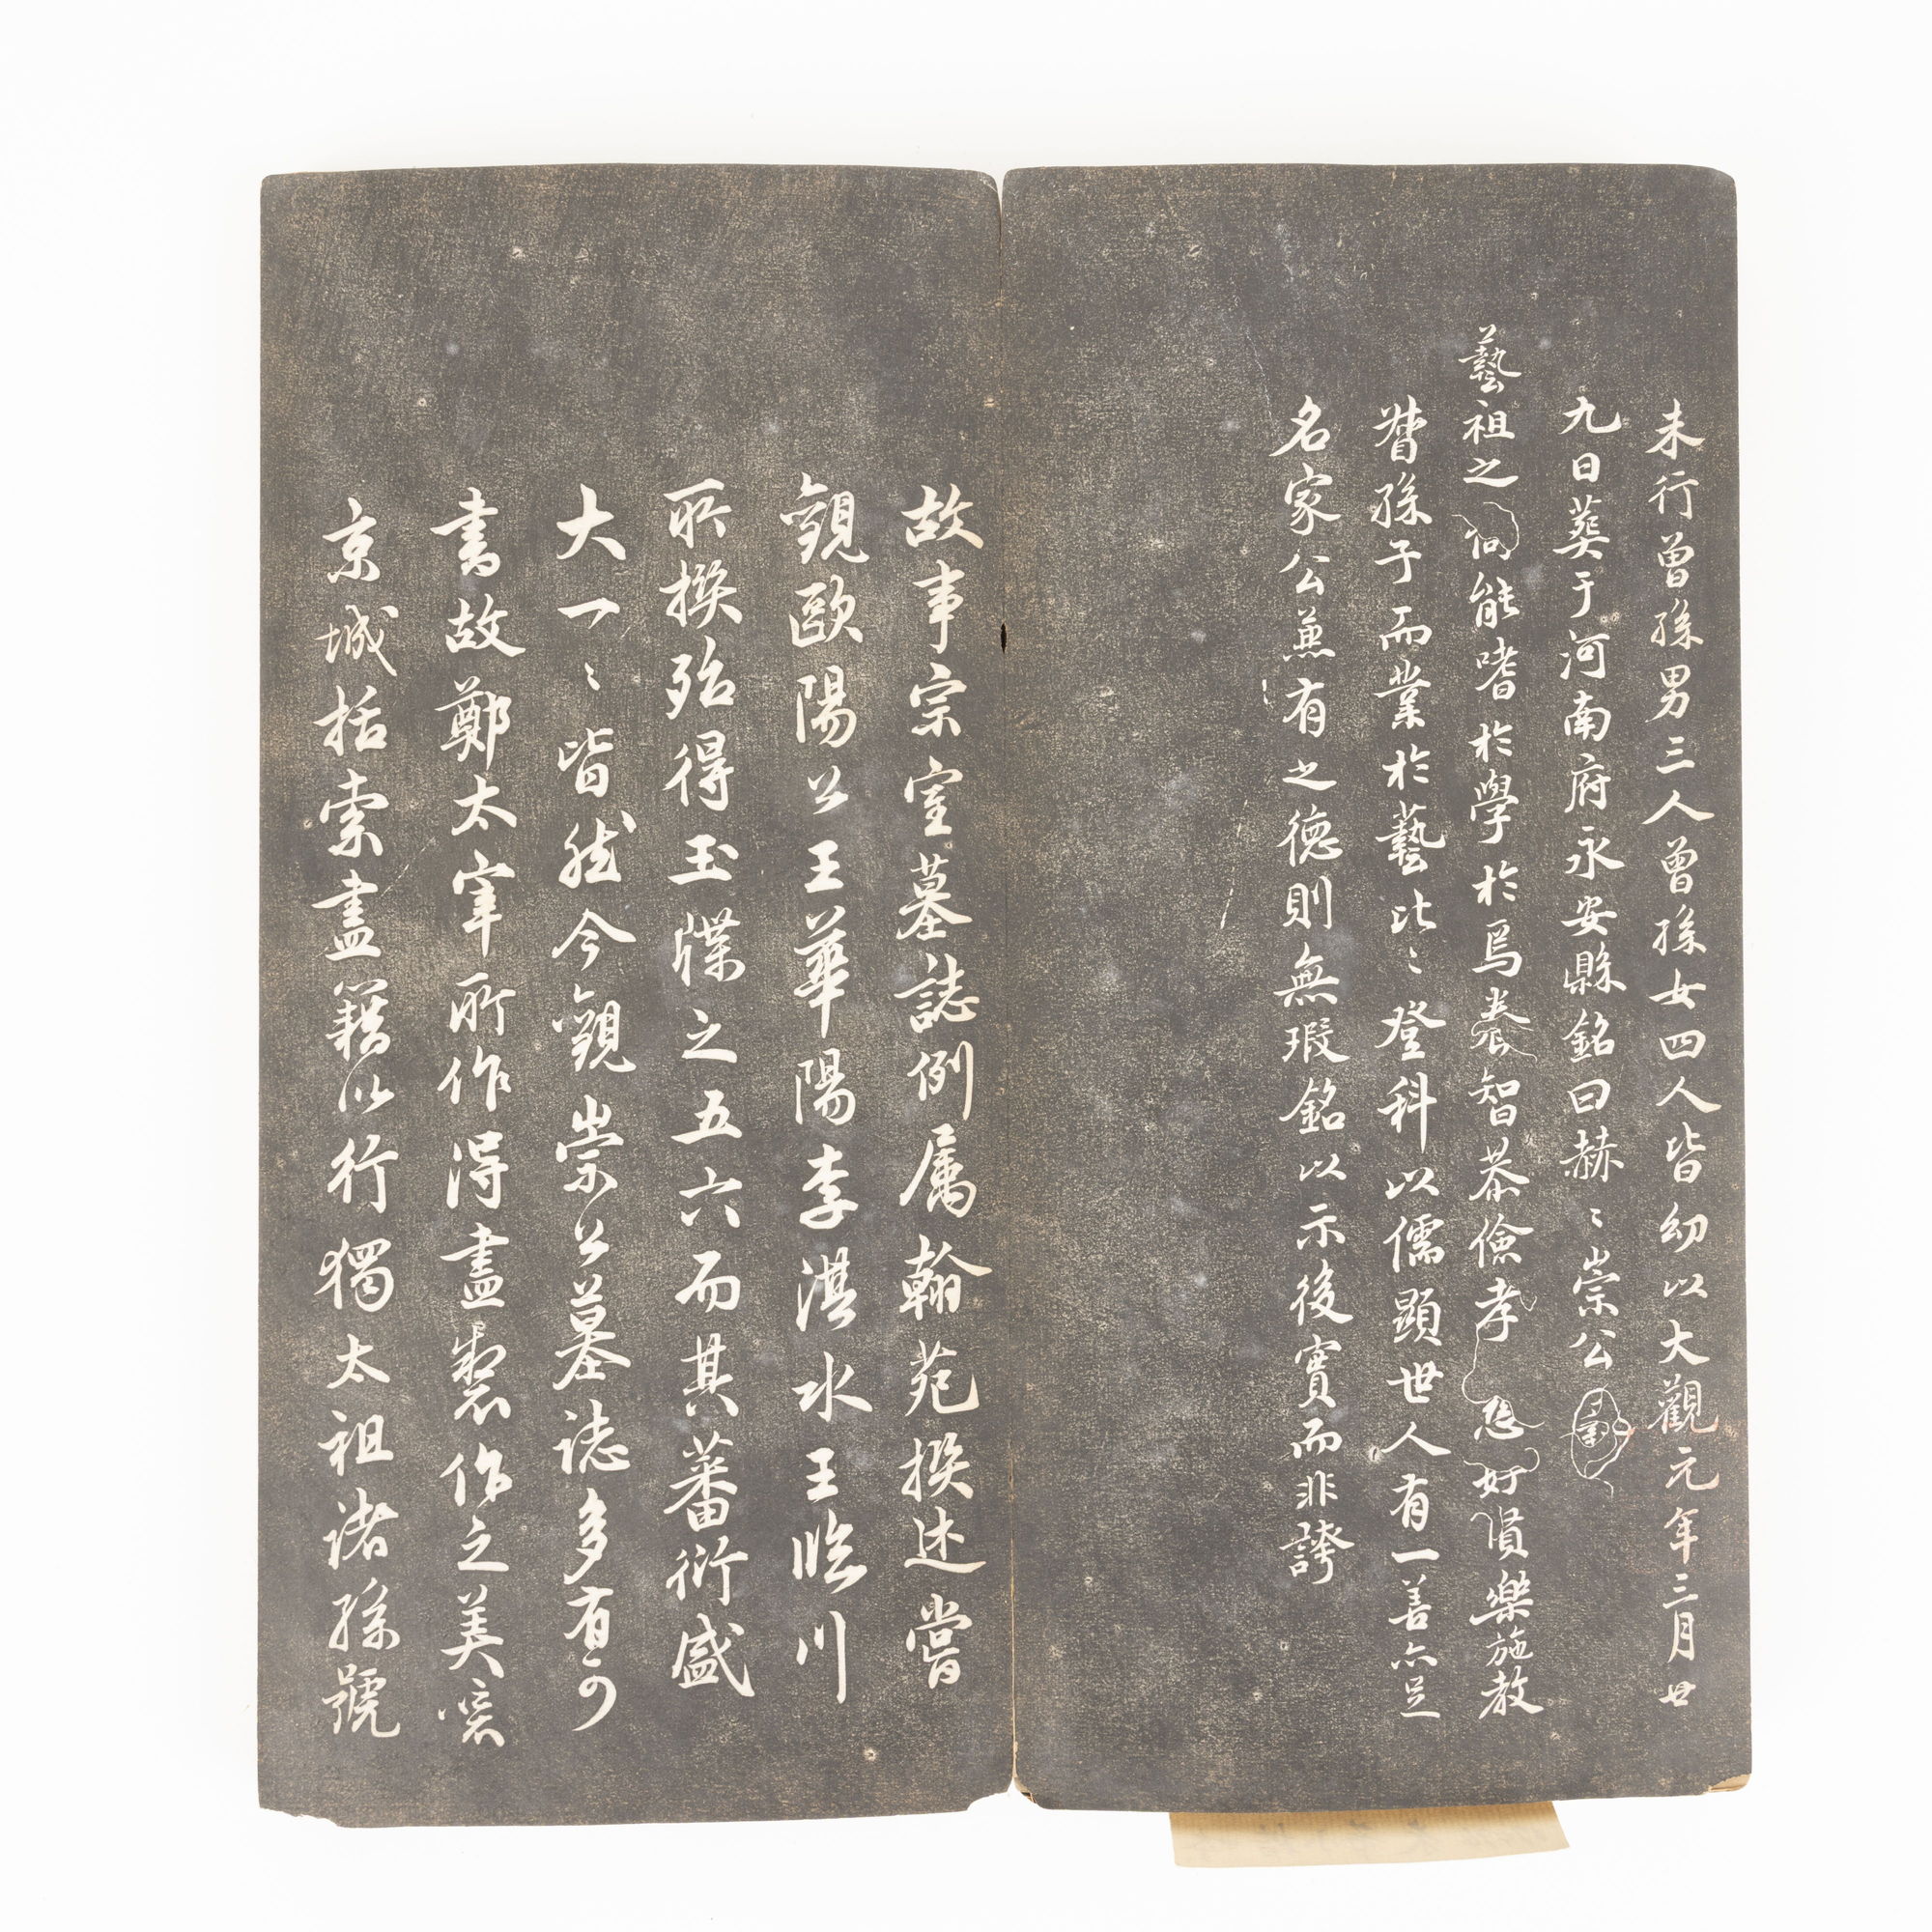 未行曾孫男三人曾孫女四人皆幼以大觀元年三月廿
九日葬于河南府永安縣銘曰赫〻崇公
藝祖之何能嗜於學於焉養智恭儉孝好賢樂施教
督孫子而業於藝比〻登科以儒顯世人有一善亦足
名家公兼有之德則無瑕銘以示後實而非誇
故事宗室墓誌例属翰苑撰述嘗
觀歐陽公王華陽李淇水王臨川
所撰殆得玉牒之五六而其蕃衍盛
大一〻皆然今觀崇公墓誌多有可
書故鄭太宰所作得盡製作之美
京城括索盡籍以行獨太祖諸孫號